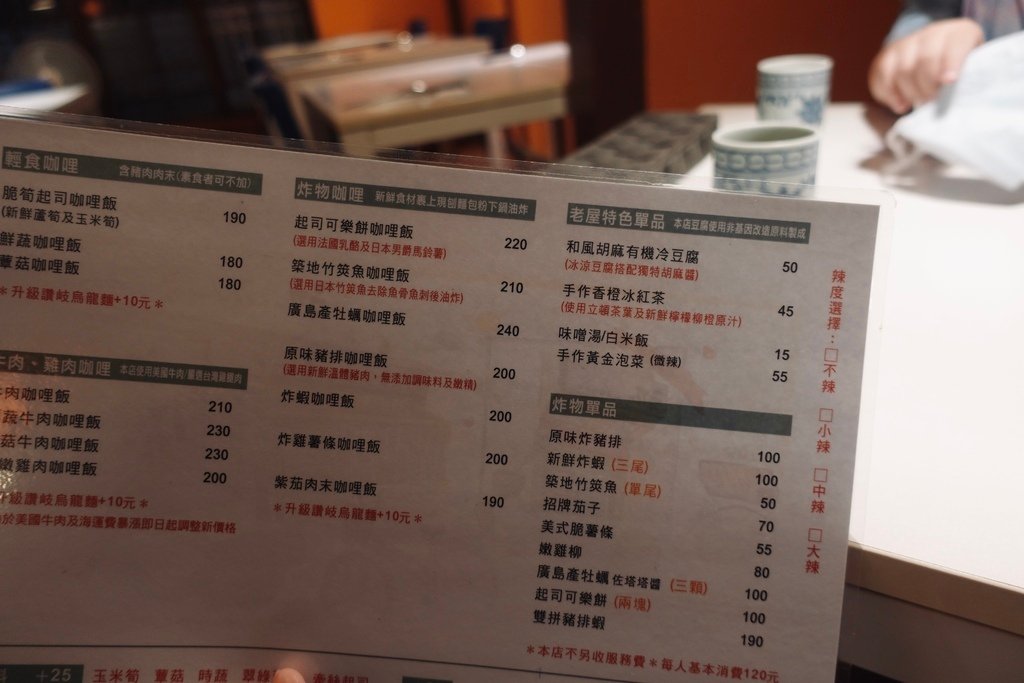 輕食咖哩 含豬肉肉末(素食者可不加)
脆筍起司咖哩飯 190
(新鮮蘆筍及玉米筍)
鮮蔬咖哩飯 180
蕈菇咖哩飯 180
*升級讚岐烏龍麵+10元*
牛肉、雞肉咖哩 本店使用美國牛肉/嚴選台灣雞腿肉
牛肉咖哩飯 210
蔬牛肉咖哩飯 230
菇牛肉咖哩飯 230
嫩雞肉咖哩飯 200
升級讚岐烏龍麵+10元*
於美國牛肉及海運費暴漲即日起調整新價格
炸物咖哩 新鮮食材裹上現刨麵包粉下鍋油炸
起司可樂餅咖哩飯 220
(選用法國乳酪及日本男爵馬鈴薯)
築地竹筴魚咖哩飯 210
(選用日本竹筴魚去除魚骨魚刺後油炸)
廣島產牡蠣咖哩飯 240
原味豬排咖哩飯 200
(選用新鮮溫體豬肉，無添加調味料及嫩精)
炸蝦咖哩飯 200
炸雞薯條咖哩飯 200
紫茄肉末咖哩飯 190
*升級讚岐烏龍麵+10元*
老屋特色單品 本店豆腐使用非基因改造原料製成
和風胡麻有機冷豆腐 50
(冰涼豆腐搭配獨特胡麻醬)
手作香橙冰紅茶 45
(使用立頓茶葉及新鮮檸檬柳橙原汁)
味噌湯/白米飯 15
手作黃金泡菜 (微辣) 55
炸物單品
原味炸豬排 100
新鮮炸蝦 (三尾) 100
築地竹筴魚 (單尾) 50
招牌茄子 70
美式脆薯條 55
嫩雞柳 80
廣島產牡蠣 佐塔塔醬 (三顆) 100
起司可樂餅 (兩塊) 100
雙拼豬排蝦 190
*本店不另收服務費*每人基本消費120元
辣度選擇：□不辣 □小辣 □中辣 □大辣
+25 玉米筍 蕈菇 時蔬